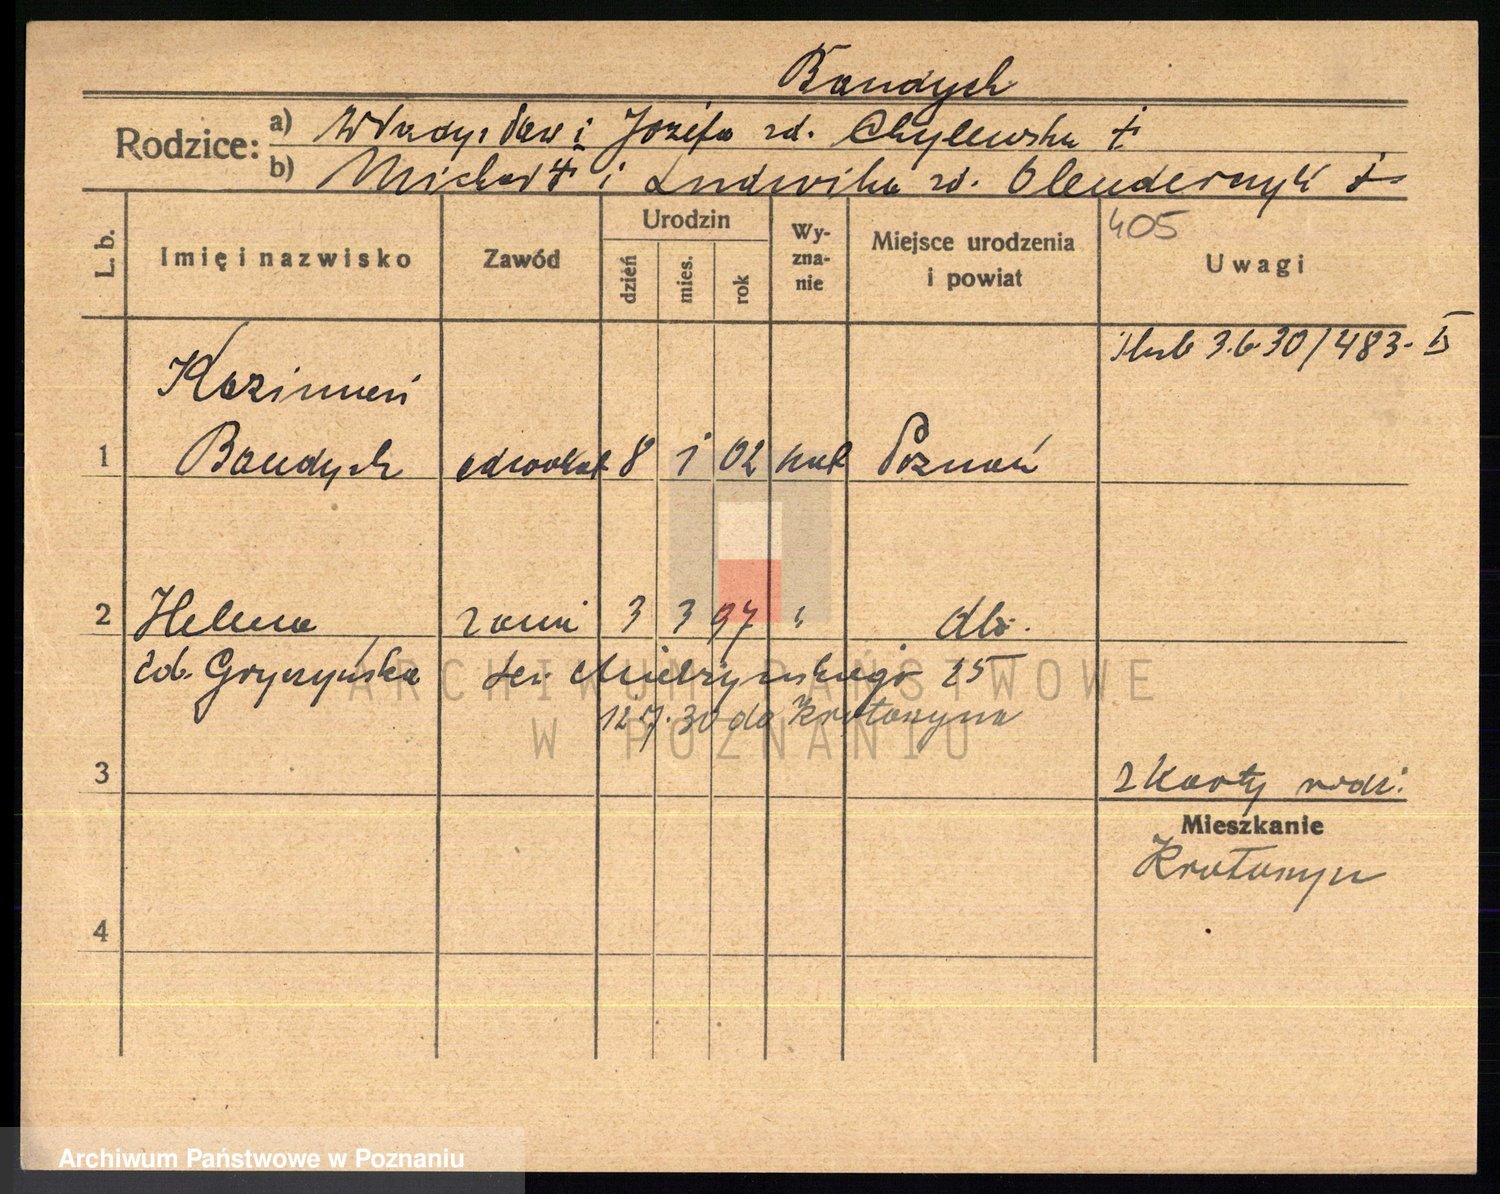 Bandych
Rodzice:
a) Władysław i Józefa zd. Chylewska †
b) Michał † i Ludwika zd. Olenderczyk †
L. b.
Imię i nazwisko
Zawód
Urodzin
dzień
mies.
rok
Wy-
zna-
nie
Miejsce urodzenia
i powiat
405
Uwagi
ślub 3.6.30/483-
Kazimierz
1 Bandych adwokat 8 1 02 kat Poznań
2 Helena 3 3 97 "
zd. Gryczyńska Mielżyńskiego 25
12.7.30 do Krotoszyna
3
2 karty rodz.
Mieszkanie
Krotoszyn
4
ARCHIWUM PAŃSTWOWE
W POZNANIU
Archiwum Państwowe w Poznaniu